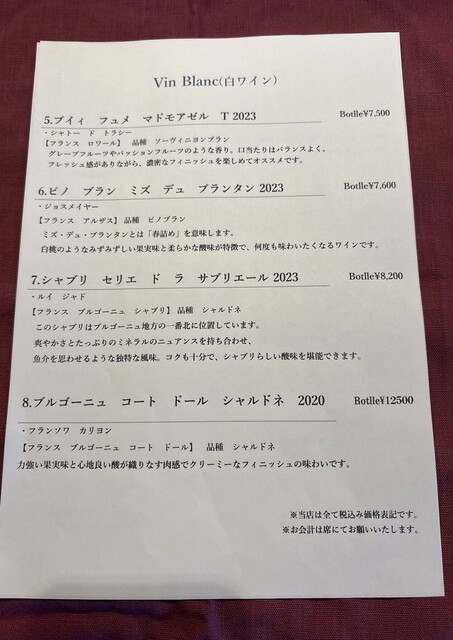 Vin Blanc(白ワイン)
5.プイィ　フュメ　マドモアゼル　T 2023 Botlle¥7,500
・シャトー　ド　トラシー
【フランス　ロワール】　品種　ソーヴィニヨンブラン
グレープフルーツやパッションフルーツのような香り。口当たりはバランスよく。
フレッシュ感がありながら、濃密なフィニッシュを楽しめてオススメです。
6.ピノ　ブラン　ミズ　デュ　プランタン 2023 Botlle¥7,600
・ジョスメイヤー
【フランス　アルザス】 品種　ピノブラン
ミズ・デュ・プランタンとは「春詰め」を意味します。
白桃のようなみずみずしい果実味と柔らかな酸味が特徴で、何度も味わいたくなるワインです。
7.シャブリ　セリエ　ド　ラ　サブリエール 2023 Botlle¥8,200
・ルイ　ジャド
【フランス　ブルゴーニュ　シャブリ】 品種　シャルドネ
このシャブリはブルゴーニュ地方の一番北に位置しています。
爽やかさとたっぷりのミネラルのニュアンスを持ち合わせ、
魚介を思わせるような独特な風味。コクも十分で、シャブリらしい酸味を堪能できます。
8.ブルゴーニュ　コート　ドール　シャルドネ　2020 Botlle¥12500
・フランソワ　カリヨン
【フランス　ブルゴーニュ　コート　ドール】　品種　シャルドネ
力強い果実味と心地良い酸が織りなす肉感でクリーミーなフィニッシュの味わいです。
※当店は全て税込み価格表記です。
※お会計は席にてお願いいたします。